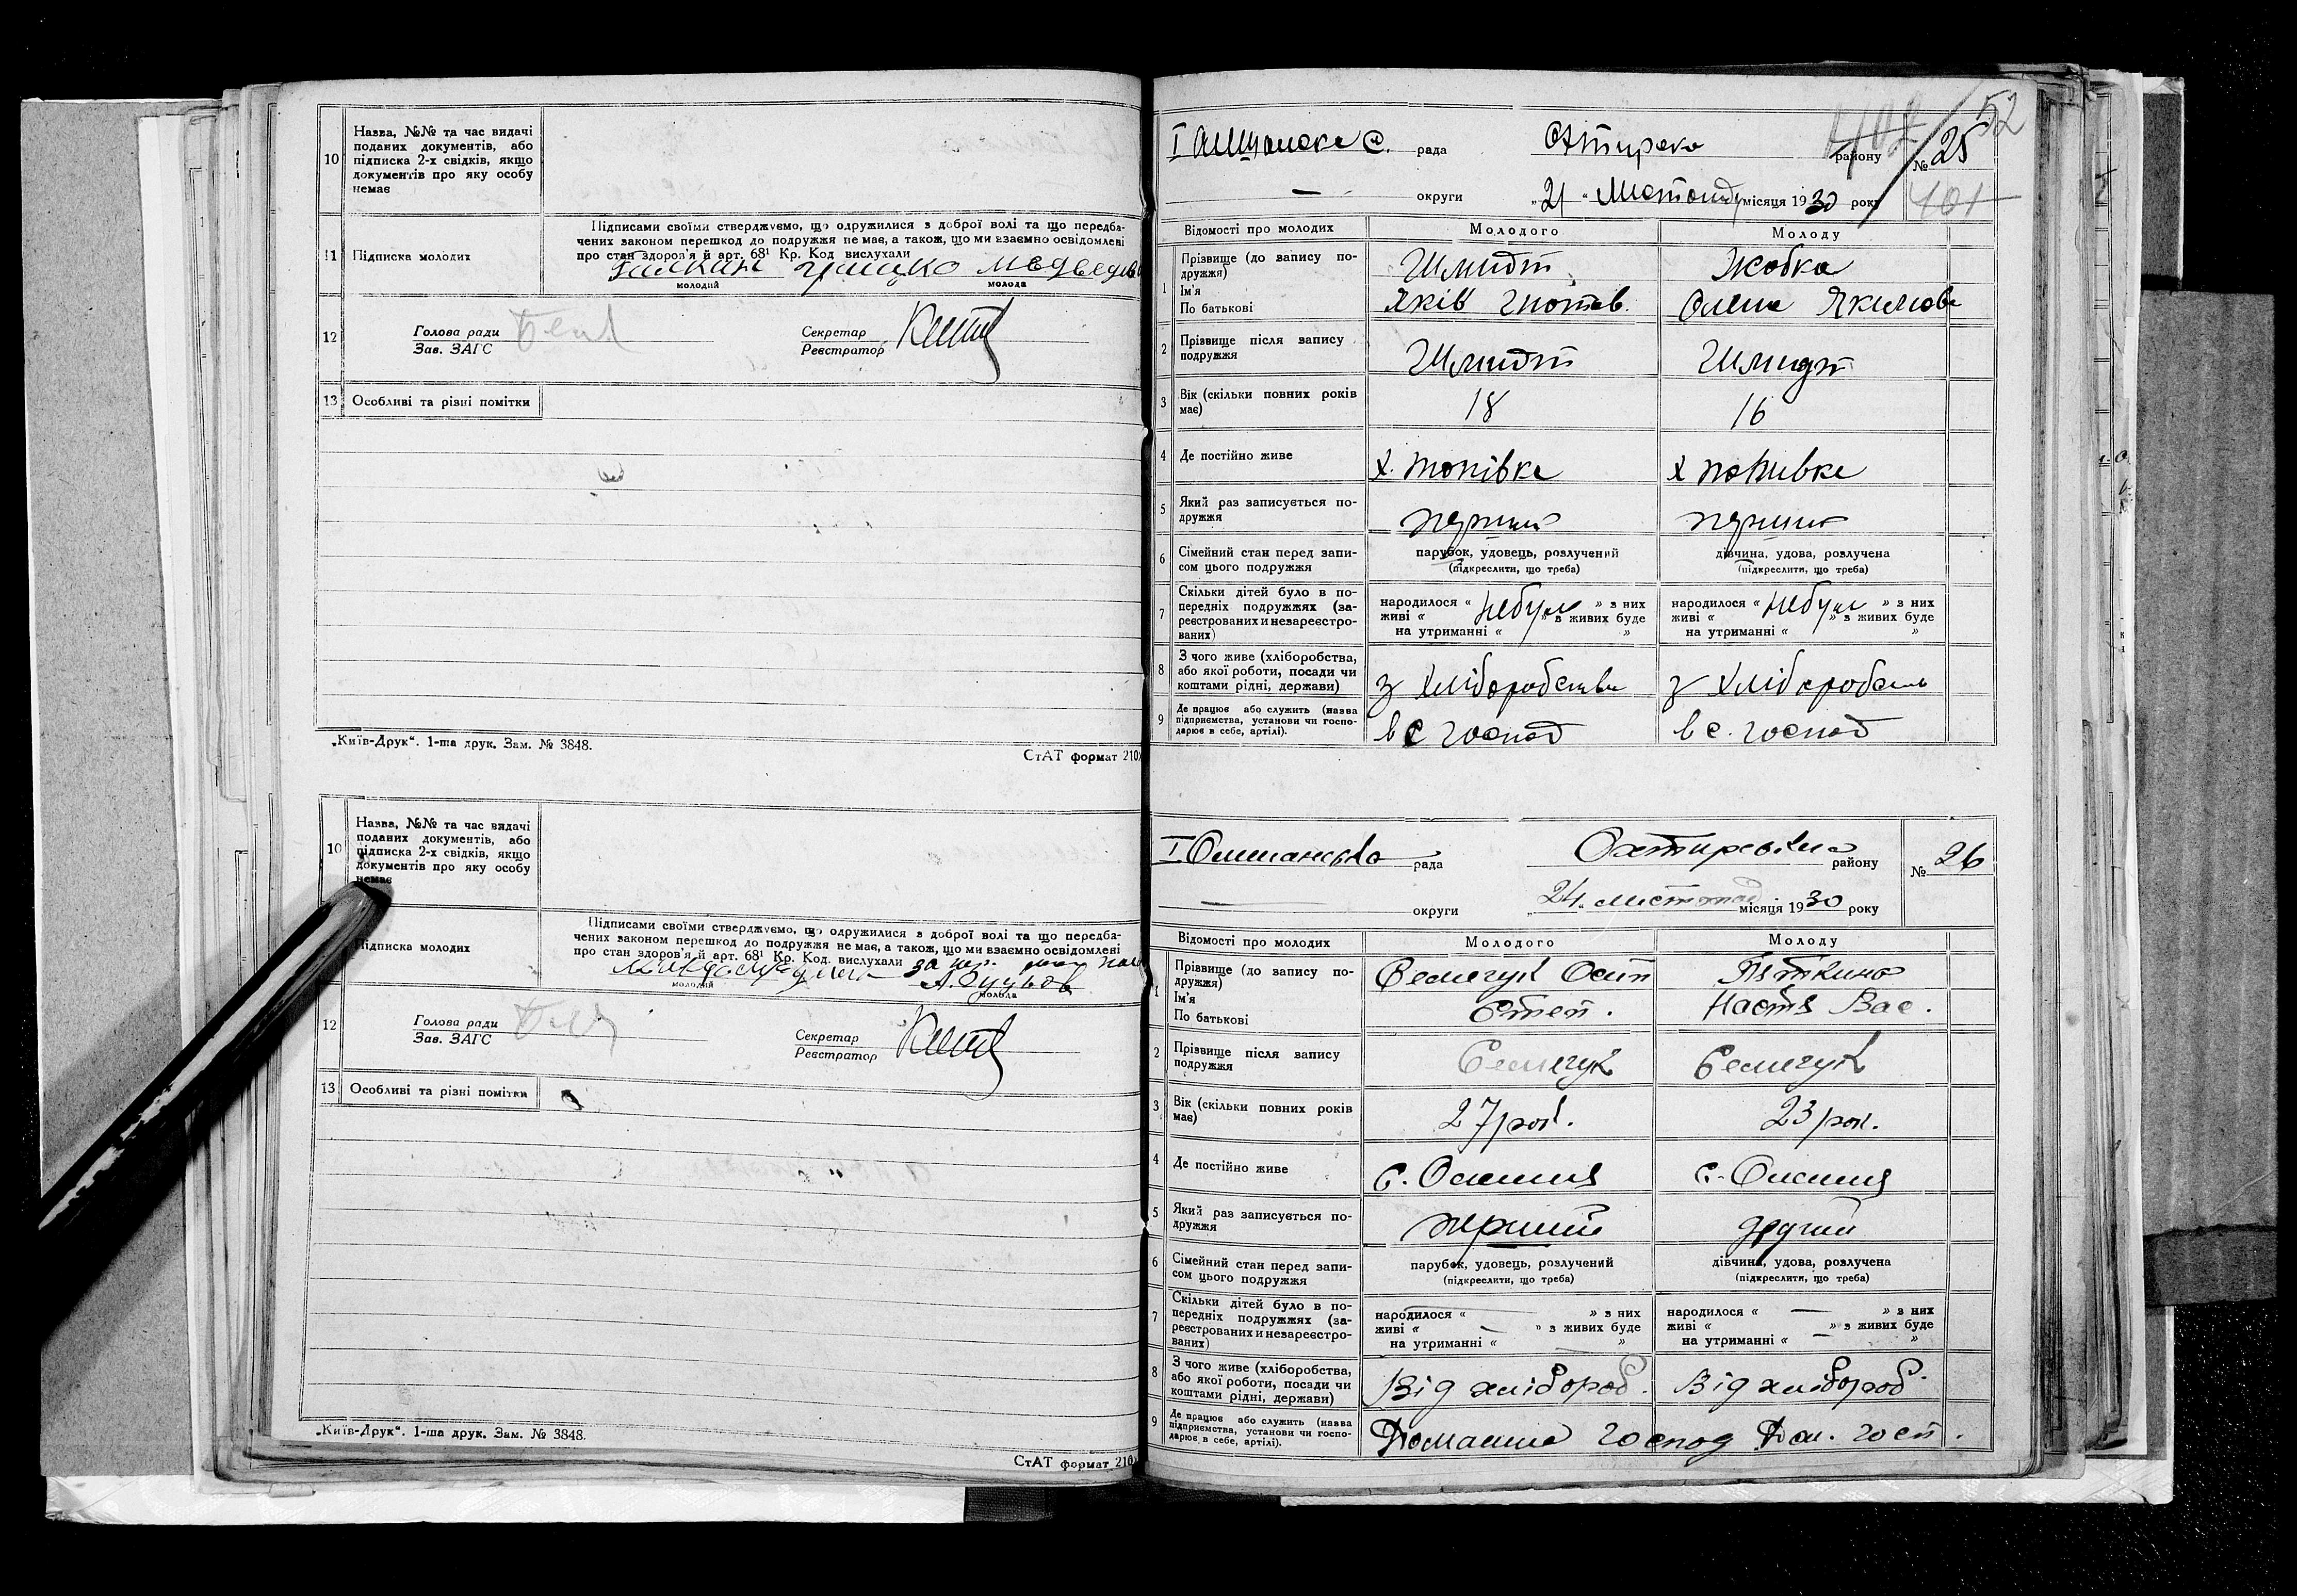 10
Назва, №№ та час видачі
поданих документів, або
підписка 2-х свідків, якщо
документів про яку особу
немає
11
Підписка молодих
Підписами своїми стверджуємо, що одружилися з доброї волі та що передба-
чених законом перешкод до подружжя не має, а також, що ми взаємно освідомлені
про стан здоров'я й арт. 68¹ Кр. Код вислухали
молодий
молода
12
Голова ради
Зав. ЗАГС
Секретар
Реєстратор
13
Особливі та різні помітки
„Київ-Друк“. 1-ша друк. Зам. № 3848.
СтАТ формат 210
10
Назва, №№ та час видачі
поданих документів, або
підписка 2-х свідків, якщо
документів про яку особу
немає
Підписка молодих
Підписами своїми стверджуємо, що одружилися з доброї волі та що передба-
чених законом перешкод до подружжя не має, а також, що ми взаємно освідомлені
про стан здоров'я й арт. 68¹ Кр. Код. вислухали
молодий
молода
12
Голова ради
Зав. ЗАГС
Секретар
Реєстратор
13
Особливі та різні помітки
„Київ-Друк“. 1-ша друк. Зам. № 3848.
СтАТ формат 210
52
I рада Охтирсько району № 25
округи „21“ Листопаду місяця 1930 року 401
Відомості про молодих Молодого Молоду
1
Прізвище (до запису по-
дружжя)
Ім'я
По батькові
Шмидт
Яків Гнотов.
Жобка
Олена Якимова
2
Прізвище після запису
подружжя
Шмидт
Шмидт
3
Вік (скільки повних років
має)
18
16
4
Де постійно живе
х. Попівка
х Попивка
5
Який раз записується по-
дружжя
перший
перший
6
Сімейний стан перед запи-
сом цього подружжя
парубок, удовець, розлучений
(підкреслити, що треба)
дівчина, удова, розлучена
(підкреслити, що треба)
7
Скільки дітей було в по-
передніх подружжях (за-
реєстрованих и незареєстро-
ваних)
народилося « небули » з них
живі « » з живих буде
на утриманні « »
народилося « небули » з них
живі « » з живих буде
на утриманні « »
8
З чого живе (хліборобства,
або якої роботи, посади чи
коштами рідні, держави)
з Хліборобства
з Хліборобств
9
Де працює або служить (назва
підприємства, установи чи госпо-
дарює в себе, артілі).
в с господ
в с. господ
I Олешанська рада Охтирська району № 26
округи „24“ листопад місяця 1930 року
Відомості про молодих Молодого Молоду
1
Прізвище (до запису по-
дружжя)
Ім'я
По батькові
Семегук Осип
Степ.
Пяткина
Настя Вас.
2
Прізвище після запису
подружжя
Семегук
Семегук
3
Вік (скільки повних років
має)
27 рок.
23 рок.
4
Де постійно живе
с. Олешня
с. Олешня
5
Який раз записується по-
дружжя
перший
другий
6
Сімейний стан перед запи-
сом цього подружжя
парубок, удовець, розлучений
(підкреслити, що треба)
дівчина, удова, розлучена
(підкреслити, що треба)
7
Скільки дітей було в по-
передніх подружжях (за-
реєстрованих и незареєстро-
ваних)
народилося « — » з них
живі « — » з живих буде
на утриманні « — »
народилося « — » з них
живі « » з живих буде
на утриманні « — »
8
З чого живе (хліборобства,
або якої роботи, посади чи
коштами рідні, держави)
Від хлібороб.
Від хлібороб.
9
Де працює або служить (назва
підприємства, установи чи госпо-
дарює в себе, артілі).
Домашне господ
Дом. госп.